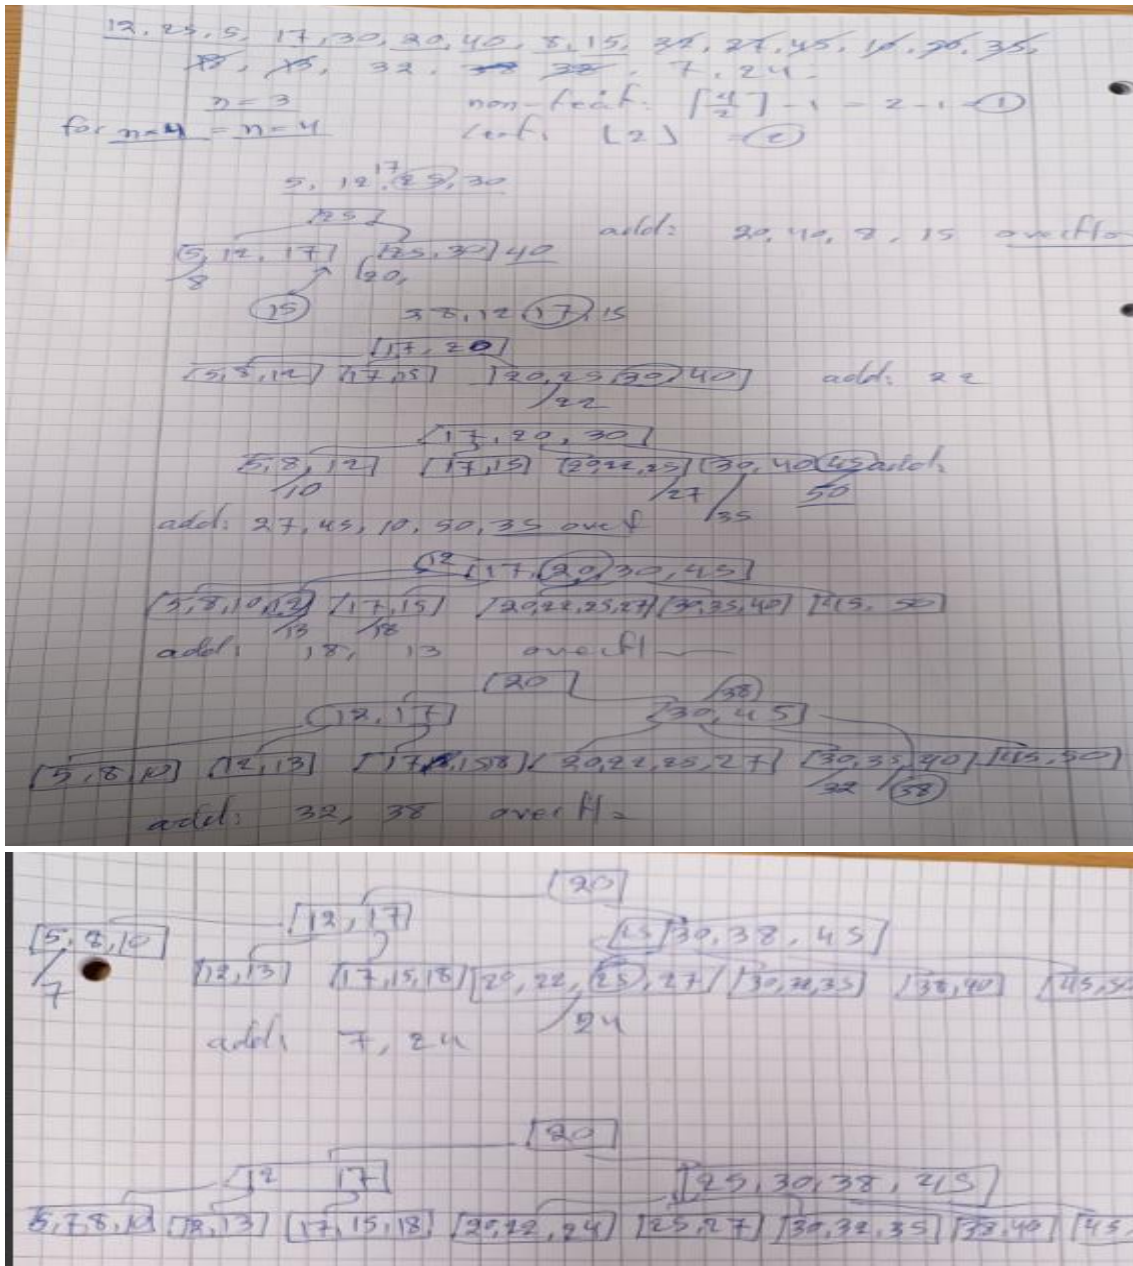 12, 25, 5, 17, 30, 20, 40, 8, 15, 32, 27, 45, 10, 50, 35,
18, 13, 32, 38 38, 7, 24
n = 3 non-leaf: ⌈4/2⌉ - 1 = 2 - 1 = 1
for n=4 = n=4 Leaf: ⌊2⌋ = 2
5, 12, 17, 25, 30
[25]
[5, 12, 17] [25, 30] 40 add: 20, 40, 8, 15 overflo
8 20,
15 8, 12, 17, 15
[17, 20]
[5, 8, 12] [17, 15] [20, 25, 30, 40] add: 22
22
[17, 20, 30]
[5, 8, 12] [17, 15] [20, 22, 25] [30, 40, 45] add:
10 27 35 50
add: 27, 45, 10, 50, 35 overf
12 [17, 20, 30, 45]
[5, 8, 10, 12] [17, 15] [20, 22, 25, 27] [30, 35, 40] [45, 50]
13 18
add: 18, 13 overfl
[20] 38
[12, 17] [30, 45]
[5, 8, 10] [12, 13] [17, 15, 18] [20, 22, 25, 27] [30, 35, 40] [45, 50]
32 38
add: 32, 38 overfl =
[20]
[12, 17]
[5, 8, 10] [30, 38, 45]
[12, 13] [17, 15, 18] [20, 22, 25, 27] [30, 32, 35] [38, 40] [45, 50
7 24
add: 7, 24
[20]
[12 17] [25, 30, 38, 45]
[5, 7, 8, 10] [12, 13] [17, 15, 18] [20, 22, 24] [25, 27] [30, 32, 35] [38, 40] [45,